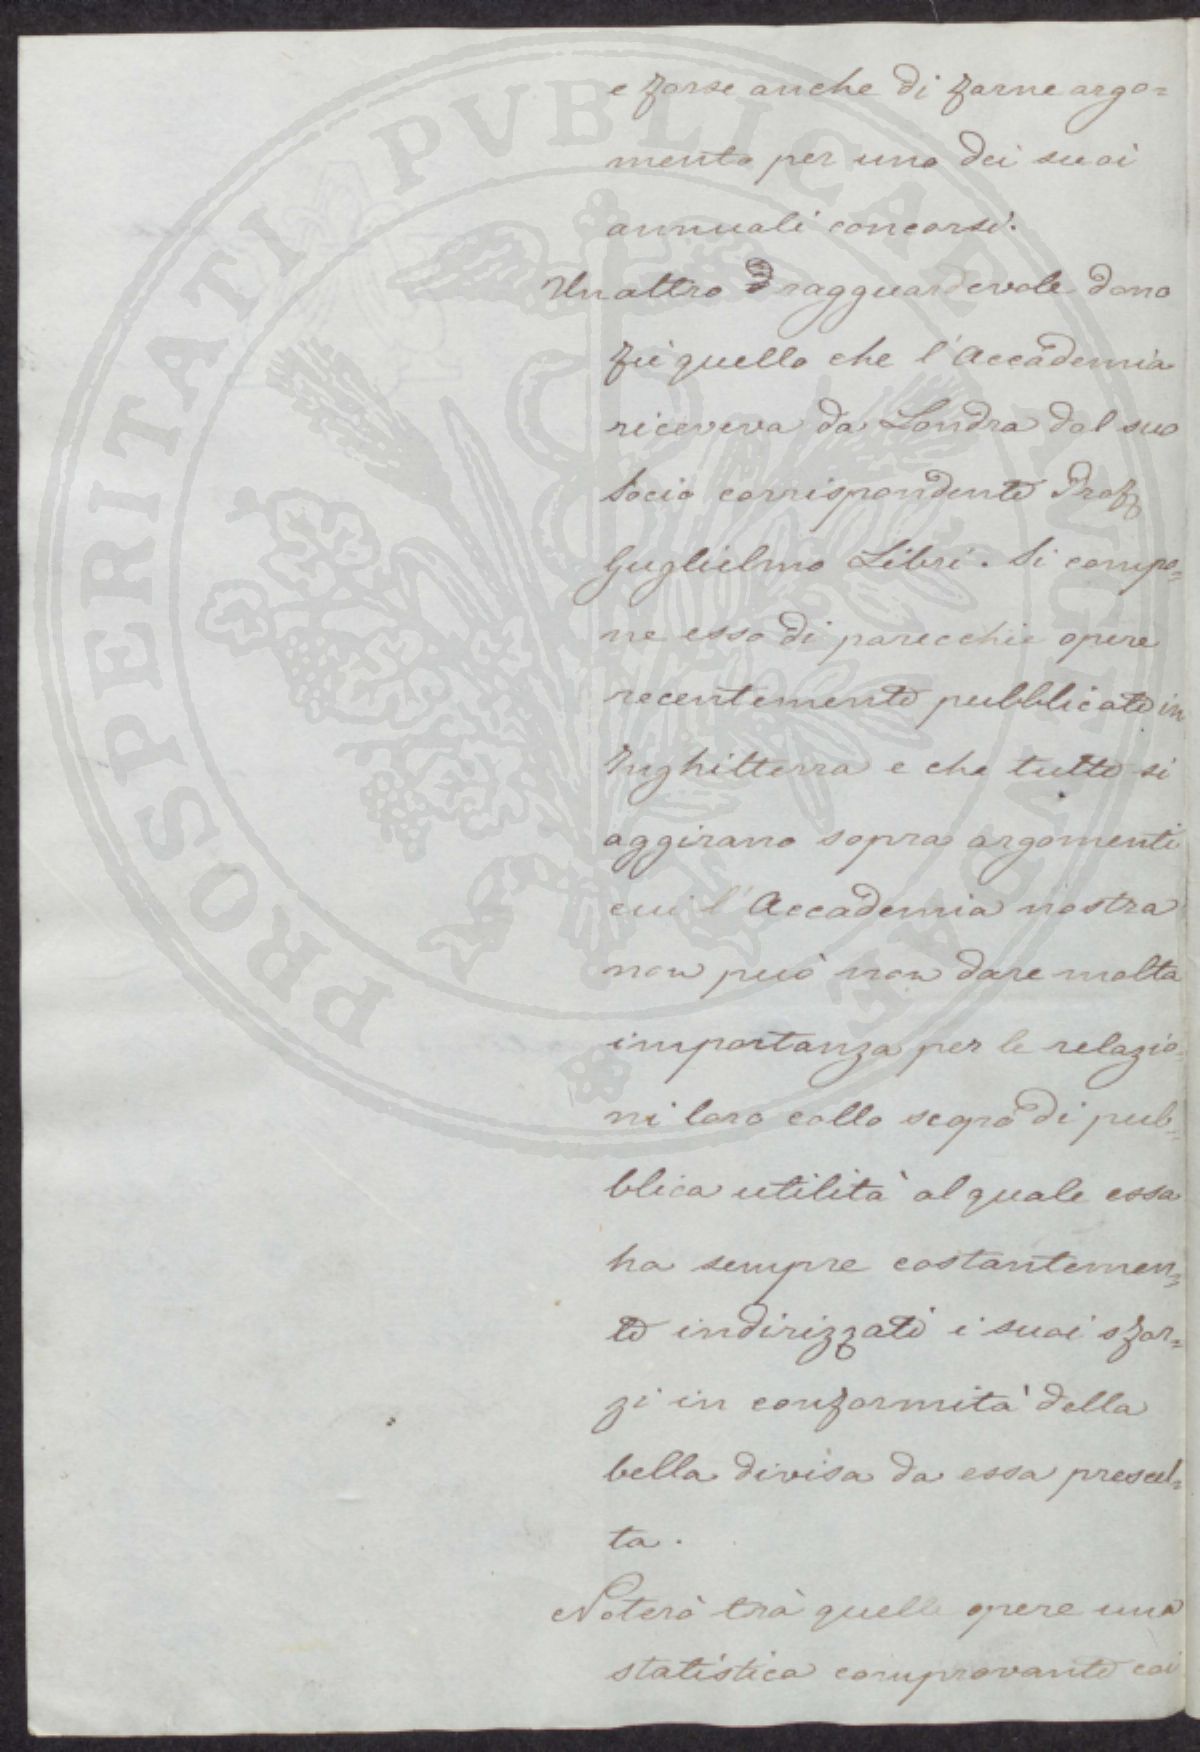 e forse anche di farne argo=
mento per uno dei suoi
annuali concorsi.
Un altro ragguardevole dono
fu quello che l'Accademia
riceveva da Londra dal suo
Socio corrispondente Prof
Guglielmo Libri. Si compo=
ne esso di parecchie opere
recentemente pubblicate in
Inghilterra e che tutte si
aggirano sopra argomenti
cui l'Accademia nostra
non può non dare molta
importanza per le relazio=
ni loro collo scopo di pub=
blica utilità al quale essa
ha sempre costantemen=
te indirizzati i suoi sfor=
zi in conformità della
bella divisa da essa prescel=
ta.
Noterò trà quelle opere una
statistica comprovante coi
PROSPERITATI PVBLICAE AVGENDAE